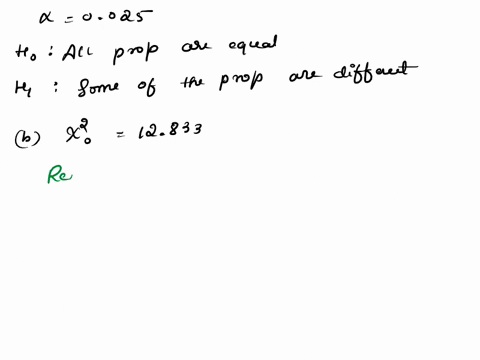 α = 0.025
H₀ : All prop are equal
H₁ : Some of the prop are diffaent
(b) χ²₀ = 12.833
Re